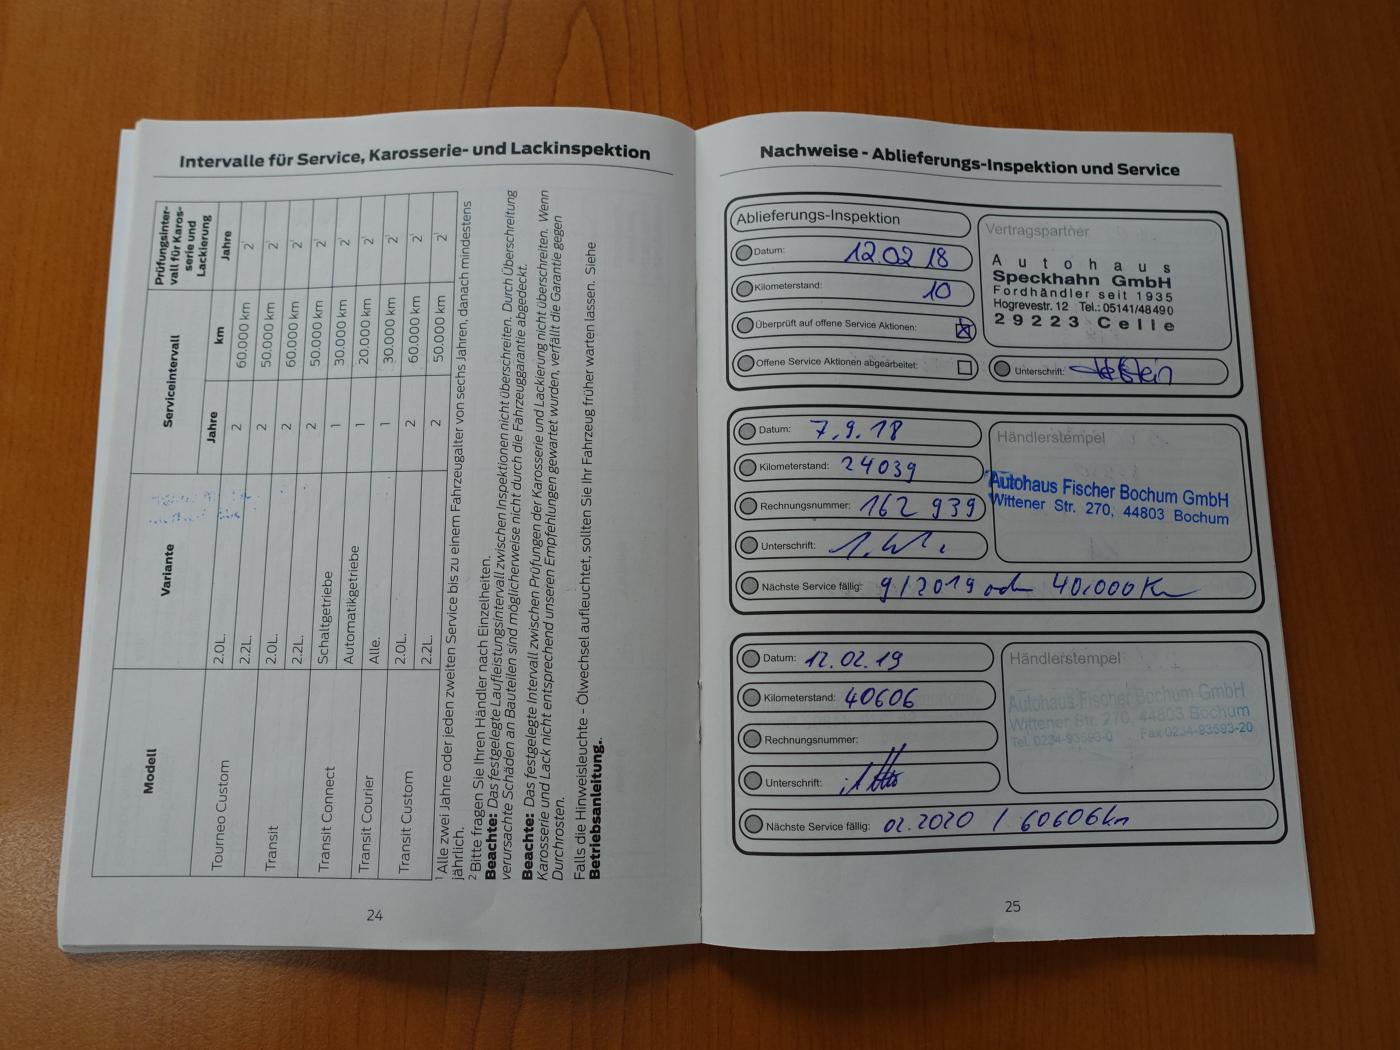 Intervalle für Service, Karosserie- und Lackinspektion
Modell Variante Serviceintervall Prüfungsinter-
vall für Karos-
serie und
Lackierung
Jahre km Jahre
Tourneo Custom 2.0L. 2 60.000 km 2¹
2.2L. 2 50.000 km 2¹
Transit 2.0L. 2 60.000 km 2¹
2.2L. 2 50.000 km 2¹
Transit Connect Schaltgetriebe 1 30.000 km 2¹
Automatikgetriebe 1 20.000 km 2¹
Transit Courier Alle. 1 30.000 km 2¹
Transit Custom 2.0L. 2 60.000 km 2¹
2.2L. 2 50.000 km 2¹
¹ Alle zwei Jahre oder jeden zweiten Service bis zu einem Fahrzeugalter von sechs Jahren, danach mindestens
jährlich.
² Bitte fragen Sie Ihren Händler nach Einzelheiten.
Beachte: Das festgelegte Laufleistungsintervall zwischen Inspektionen nicht überschreiten. Durch Überschreitung
verursachte Schäden an Bauteilen sind möglicherweise nicht durch die Fahrzeuggarantie abgedeckt.
Beachte: Das festgelegte Intervall zwischen Prüfungen der Karosserie und Lackierung nicht überschreiten. Wenn
Karosserie und Lack nicht entsprechend unseren Empfehlungen gewartet wurden, verfällt die Garantie gegen
Durchrosten.
Falls die Hinweisleuchte - Ölwechsel aufleuchtet, sollten Sie Ihr Fahrzeug früher warten lassen. Siehe
Betriebsanleitung.
24
Nachweise - Ablieferungs-Inspektion und Service
Ablieferungs-Inspektion
Datum: 12 02 18
Kilometerstand: 10
Überprüft auf offene Service Aktionen:
Offene Service Aktionen abgearbeitet:
Vertragspartner
Autohaus
Speckhahn GmbH
Fordhändler seit 1935
Hogrevestr. 12 Tel.: 05141/48490
29223 Celle
Unterschrift:
Datum: 7.9.18
Kilometerstand: 24039
Rechnungsnummer: 162 939
Unterschrift:
Händlerstempel
Autohaus Fischer Bochum GmbH
Wittener Str. 270, 44803 Bochum
Nächste Service fällig: 9/2019 oder 40.000 Km
Datum: 12.02.19
Kilometerstand: 40606
Rechnungsnummer:
Unterschrift:
Händlerstempel
Autohaus Fischer Bochum GmbH
Wittener Str. 270, 44803 Bochum
Tel. 0234-93593-0 Fax 0234-93593-20
Nächste Service fällig: 02.2020 / 60606km
25